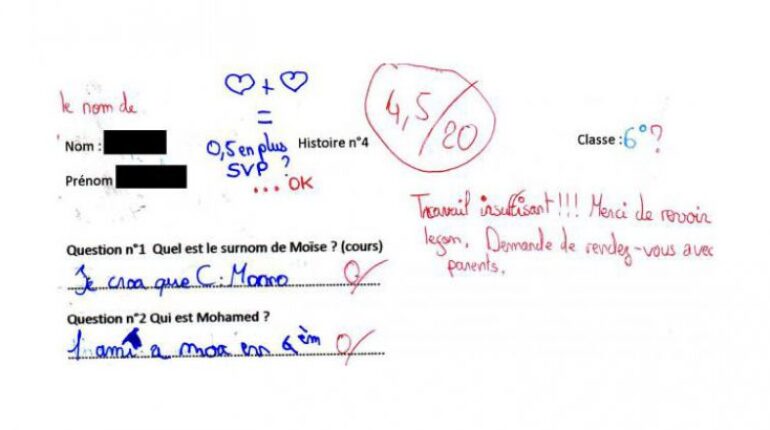 le nom de
Nom :
Prénom
+
=
0,5 en plus
SVP ?
... OK
Histoire n°4
4,5/20
Classe : 6° ?
Travail insuffisant !!! Merci de revoir
leçon. Demande de rendez-vous avec
parents.
Question n°1 Quel est le surnom de Moïse ? (cours)
Je croa que C. Momo 0/
Question n°2 Qui est Mohamed ?
1 ami a moa en 6èm 0/